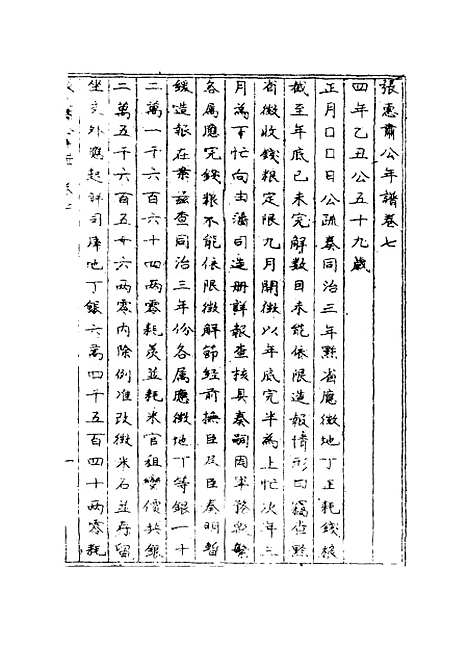 張惠肅公年譜卷七
四年乙丑公五十九歲
正月口口日公疏奏同治三年黔省應徵地丁正耗錢糧
截至年底已未完解數目未能依限造報情形曰竊查黔
省徵收錢糧定限九月開徵以年底完半為上忙次年三
月為下忙向由藩司造册詳報查核具奏嗣因軍務殷繁
各屬應完錢糧不能依限徵解節經前撫臣及臣奏明暫
緩造報在案茲查同治三年份各屬應徵地丁等銀一十
二萬一千六百六十四兩零耗羨並耗米官租變價共銀
二萬五千六百五十六兩零內除例准改徵米石並存留
坐支外應起解司庫地丁銀六萬四千五百四十兩零耗
一